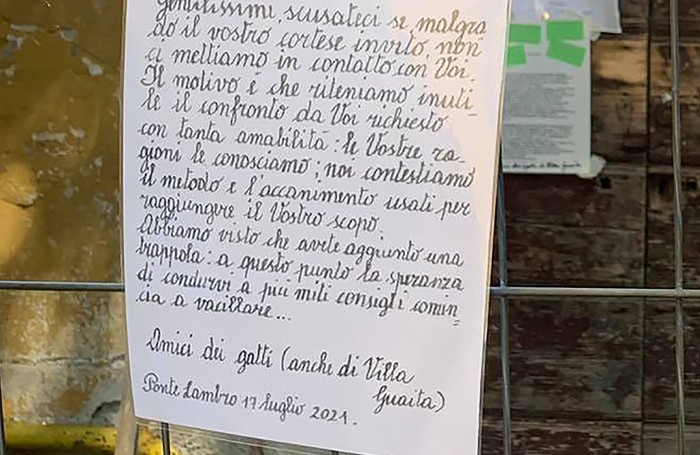 Gentilissimi, scusateci se, malgra
do il vostro cortese invito, non
ci mettiamo in contatto con Voi.
Il motivo è che riteniamo inuti-
le il confronto da Voi richiesto
con tanta amabilità: le Vostre ra-
gioni le conosciamo; noi contestiamo
il metodo e l'accanimento usati per
raggiungere il Vostro scopo.
Abbiamo visto che avete aggiunto una
trappola: a questo punto la speranza
di condurvi a più miti consigli comin_
cia a vacillare...
Amici dei gatti (anche di Villa
Guaita)
Ponte Lambro 17 luglio 2021.